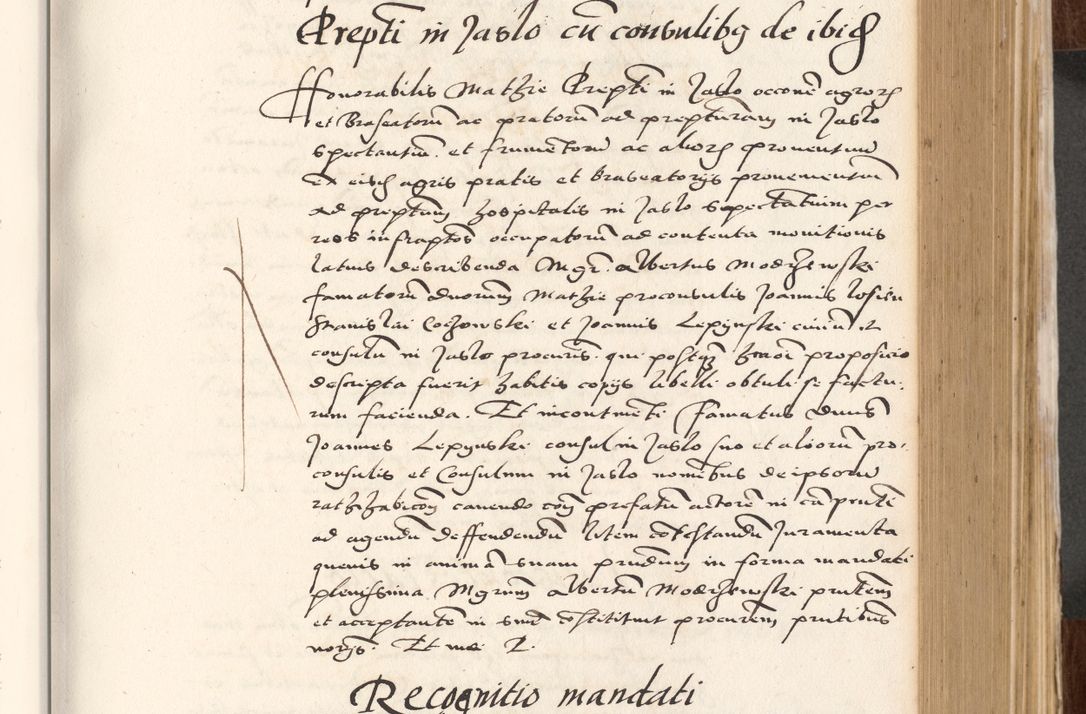 Prepti in Jaslo cu consulibg de ibid
Honorabilis Mathie Prepti in Jaslo occone agror
et Braseatoru ac pratoru ad prepturam in Jaslo
spectantiu et frumetoru ac alior prouentuu
ex eisd agris pratis et braseatorijs prouenientiu
ad preptum hospitalis in Jaslo spectatuim per
reos infraptos occupatoru ad contenta monitionis
latius describenda Mgr. Albertus Modrzewski
famatoru duorum Mathie proconsulis Joannis
Stanislai Coczowski et Joannis Lepynski ciuiu et
consulu in Jaslo procuris. qui postqz propositio
descripta fuerit habitis copijs libelli obtulit se factu-
rum facienda. Et incontineti famatus dnus
Joannes Lepynski consul in Jaslo suo et alioru pro-
consulis et Consulum in Jaslo nominibus de ipsoru
ratihabicoe cauendo coz prefatu actore in ca pnti
ad agendu deffendendu litem cotestandu Juramenta
queuis in anima suam prestandum in forma mandati
plenissima Mgrum Albertu Modrzewski pntem
et acceptante in suu costituit procurem pntibus
norijs. Et me P.
Recognitio mandati